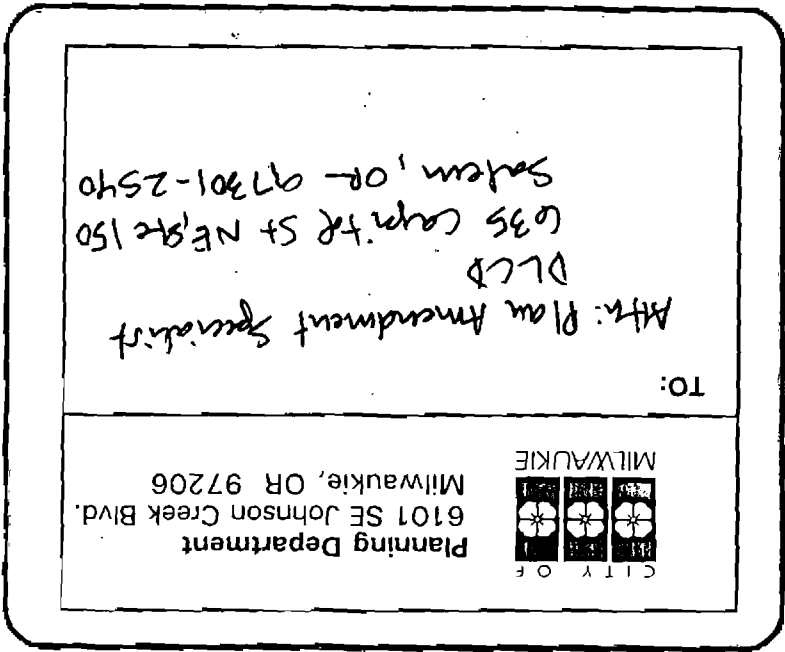 CITY OF
MILWAUKIE
Planning Department
6101 SE Johnson Creek Blvd.
Milwaukie, OR 97206
TO:
Attn: Plan Amendment Specialist
DLCD
635 Capitol St NE, Ste 150
Salem, OR 97301-2540